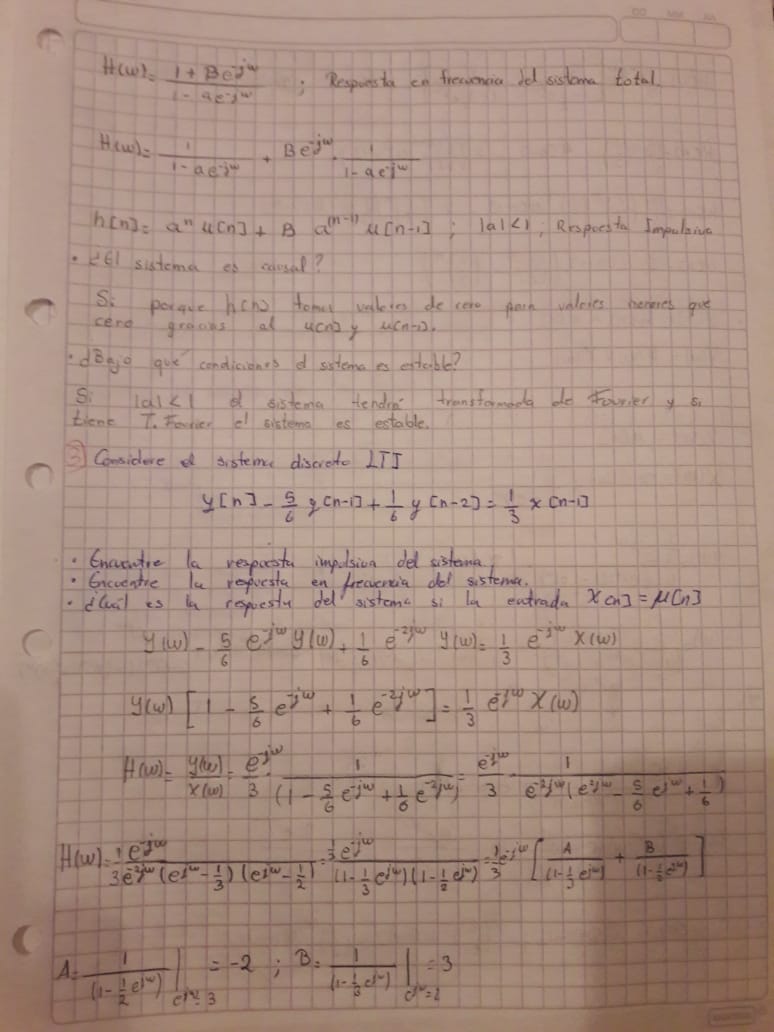 H(w)= (1 + Be^-jw)/(1 - ae^-jw) ; Respuesta en frecuencia del sistema total.
H(w)= 1/(1 - ae^-jw) + Be^-jw · 1/(1 - ae^-jw)
h[n]= a^n u[n] + B a^(n-1) u[n-1] ; |a|<1 ; Respuesta Impulsiva
• ¿El sistema es causal?
Si porque h[n] toma valores de cero para valores menores que
cero gracias al u[n] y u[n-1].
• ¿Bajo qué condiciones el sistema es estable?
Si |a|<1 el sistema tendrá transformada de Fourier y si
tiene T. Fourier el sistema es estable.
3 Considere el sistema discreto LTI
y[n] - 5/6 y[n-1] + 1/6 y[n-2] = 1/3 x[n-1]
• Encuentre la respuesta impulsiva del sistema.
• Encuentre la respuesta en frecuencia del sistema.
• ¿Cuál es la respuesta del sistema si la entrada x[n] = μ[n]
Y(w) - 5/6 e^-jw Y(w) + 1/6 e^-2jw Y(w) = 1/3 e^-jw X(w)
Y(w) [1 - 5/6 e^-jw + 1/6 e^-2jw] = 1/3 e^-jw X(w)
H(w)= Y(w)/X(w) = e^-jw/3 · 1/(1 - 5/6 e^-jw + 1/6 e^-2jw) = e^-jw/3 · 1/(e^-2jw (e^2jw - 5/6 e^jw + 1/6))
H(w)= 1/3 e^-jw/(e^-2jw (e^jw - 1/3) (e^jw - 1/2)) = 1/3 e^-jw/((1 - 1/3 e^jw)(1 - 1/2 e^jw)) = 1/3 e^-jw [A/(1 - 1/3 e^jw) + B/(1 - 1/2 e^jw)]
A= 1/(1 - 1/2 e^jw) | e^jw = 3 = -2 ; B= 1/(1 - 1/3 e^jw) | e^jw = 2 = 3